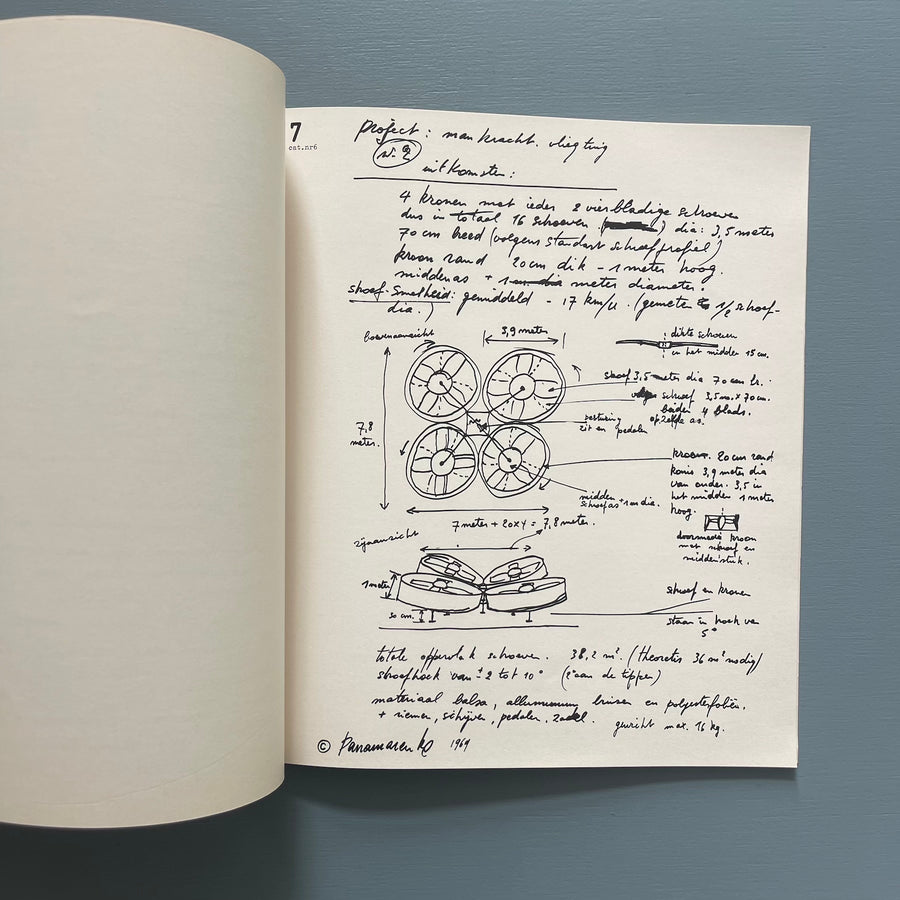 7
cat.nr6
project: mankracht. vliegtuig
nr. 2
uitkomsten:
4 kronen met ieder 2 vierbladige schroeven
dus in totaal 16 schroeven dia: 3,5 meter
70 cm breed (volgens standart schroefprofiel)
kroon rand 20cm dik - 1 meter hoog.
middenas + 1 meter diameter.
schroef-snelheid: gemiddeld - 17 km/u. (gemeten 1/2 schroef-
dia.)
bovenaanzicht
3,9 meter
dikte schroeven
in het midden 15 cm.
schroef 3,5 meter dia 70 cm br.
schroef 3,5 m. x 70 cm.
beiden 4 blads.
op zelfde as.
besturing
zit en pedalen
7,8
meter.
kroon. 20 cm rand
3,9 meter dia
van onder. 3,5 in
het midden 1 meter
hoog.
midden
schroefas + 1 m dia.
7 meter + 20x4 = 7,8 meter.
doorsnede kroon
met schroef en
middenstuk.
zijaanzicht
1 meter
50 cm.
schroef en kronen
staan in hoek van
5°
totale oppervlak schroeven. 38,2 m². (theoretis 36 m² nodig)
schroefhoek van ± 2 tot 10° (2 aan de tippen)
materiaal balsa, alluminium buizen en polyesterfoliën.
+ riemen, schijven, pedalen, zadel. gewicht max. 16 kg.
© Panamarenko 1969